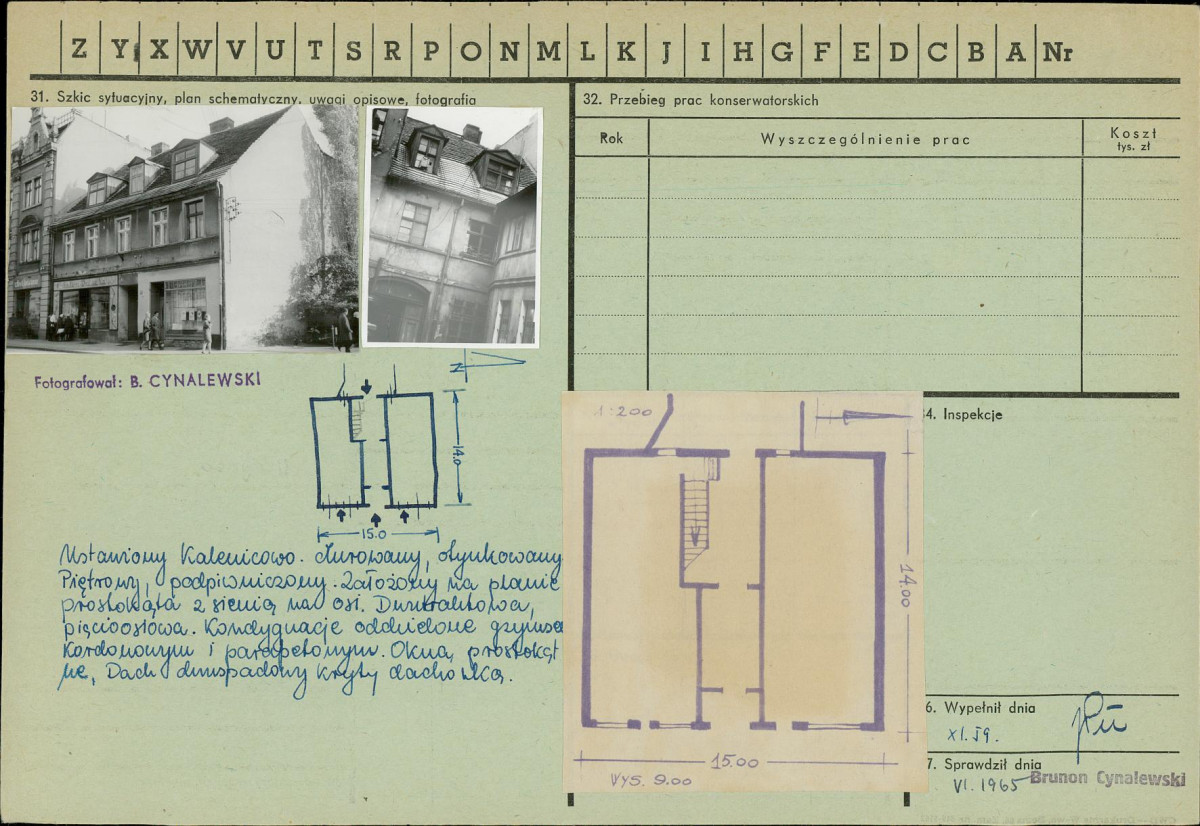 Z Y X W V U T S R P O N M L K J I H G F E D C B A Nr
31. Szkic sytuacyjny, plan schematyczny, uwagi opisowe, fotografia
Fotografował: B. CYNALEWSKI
N
14.0
15.0
Ustawiony Kalenicowo. Murowany, otynkowany
Piętrowy, podpiwniczony. Założony na planie
prostokąta z sienią na osi. Dwutraktowa,
pięcioosiowa. Kondygnacje oddzielone gzymsem
Kordonowym i parapetowym. Okna, prostokąt
ne, Dach dwuspadowy Kryty dachówką.
32. Przebieg prac konserwatorskich
Rok
Wyszczególnienie prac
Koszt
tys. zł
1:200
14.00
15.00
WYS. 9.00
34. Inspekcje
6. Wypełnił dnia
XI.59.
7. Sprawdził dnia
VI. 1965
Brunon Cynalewski